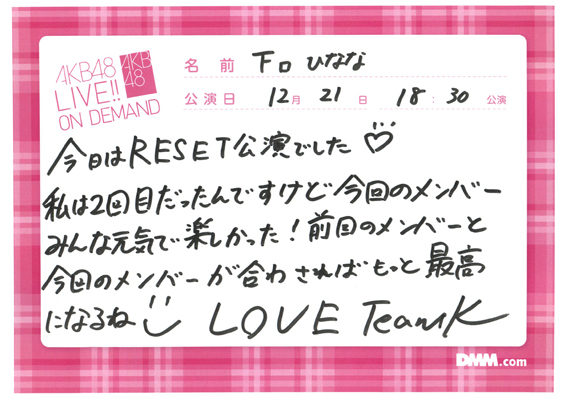 AKB48
LIVE!!
ON DEMAND
AKB
48
名前 下口ひなな
公演日 12月21日 18:30公演
今日はRESET公演でした
私は2回目だったんですけど今回のメンバー
みんな元気で楽しかった!前回のメンバーと
今回のメンバーが合わさればもっと最高
になるね LOVE TeamK
DMM.com